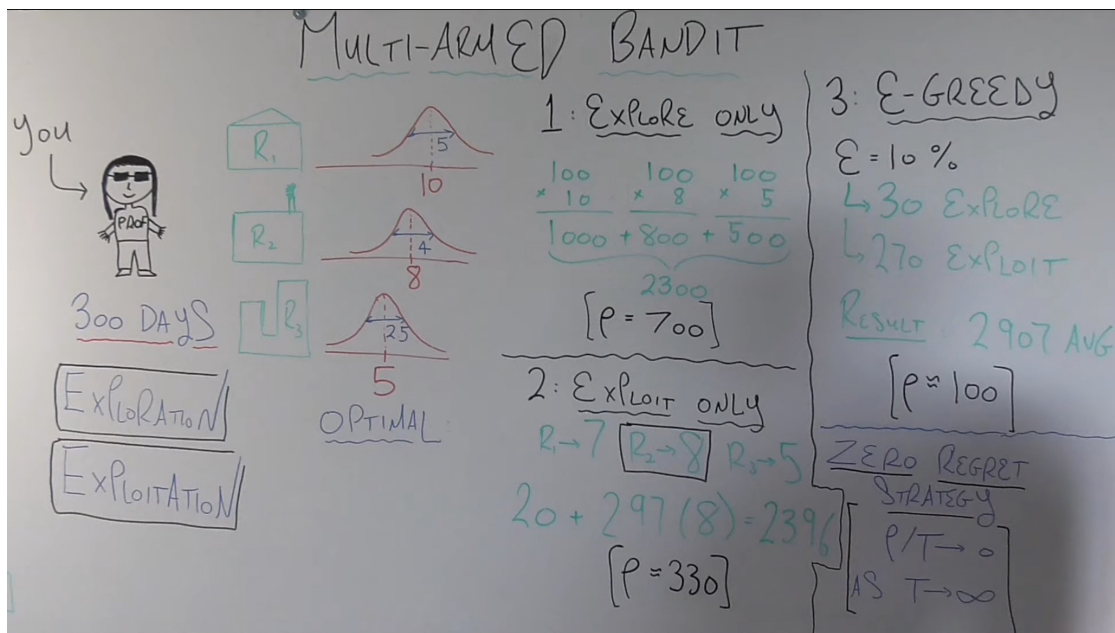 MULTI-ARMED BANDIT
YOU
PROF
300 DAYS
EXPLORATION
EXPLOITATION
R₁
5
10
R₂
4
8
R₃
2.5
5
OPTIMAL
1: EXPLORE ONLY
100 100 100
× 10 × 8 × 5
1000 + 800 + 500
2300
[ρ = 700]
2: EXPLOIT ONLY
R₁→7 R₂→8 R₃→5
20 + 297(8) = 2396
[ρ ≈ 330]
3: ε-GREEDY
ε = 10%
↳30 EXPLORE
↳270 EXPLOIT
RESULT 2907 AVG
[ρ ≈ 100]
ZERO REGRET
STRATEGY
ρ/T → 0
AS T → ∞